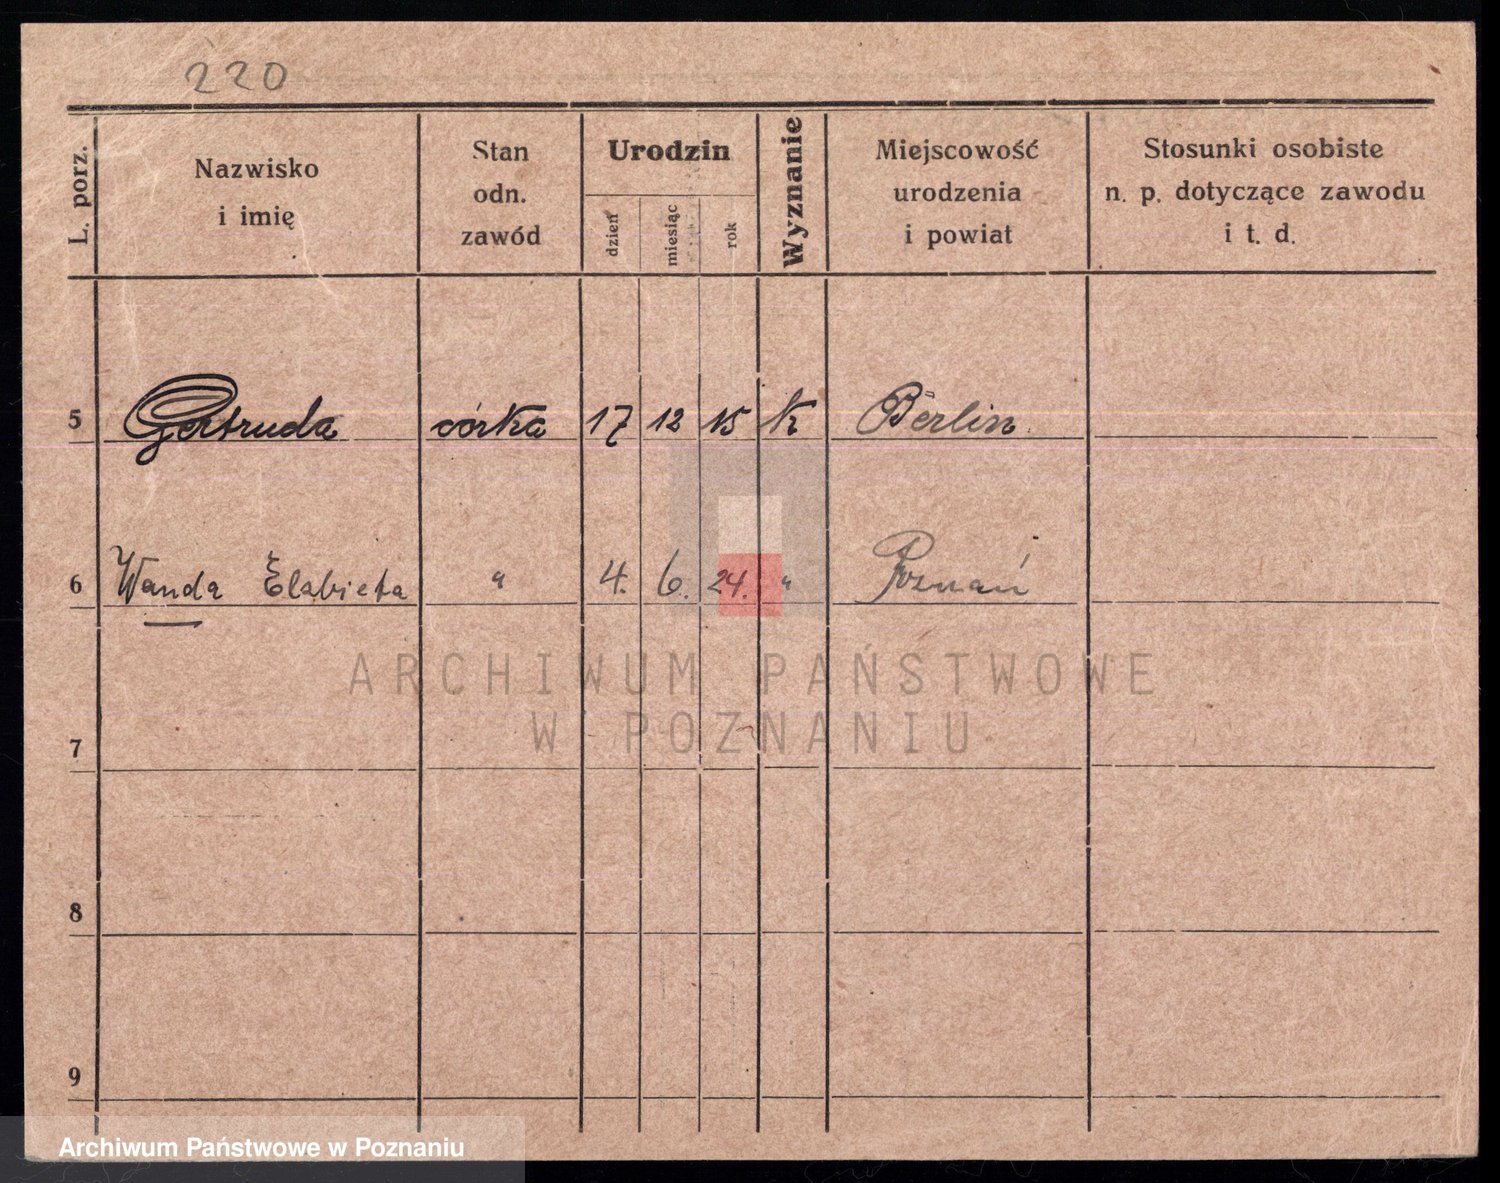 220
L. porz.
Nazwisko
i imię
Stan
odn.
zawód
Urodzin
dzień
miesiąc
rok
Wyznanie
Miejscowość
urodzenia
i powiat
Stosunki osobiste
n. p. dotyczące zawodu
i t. d.
5 Gertruda córka 17 12 15 k Berlin
6 Wanda Elżbieta " 4. 6. 24. " Poznań
ARCHIWUM PAŃSTWOWE
W POZNANIU
7
8
9
Archiwum Państwowe w Poznaniu